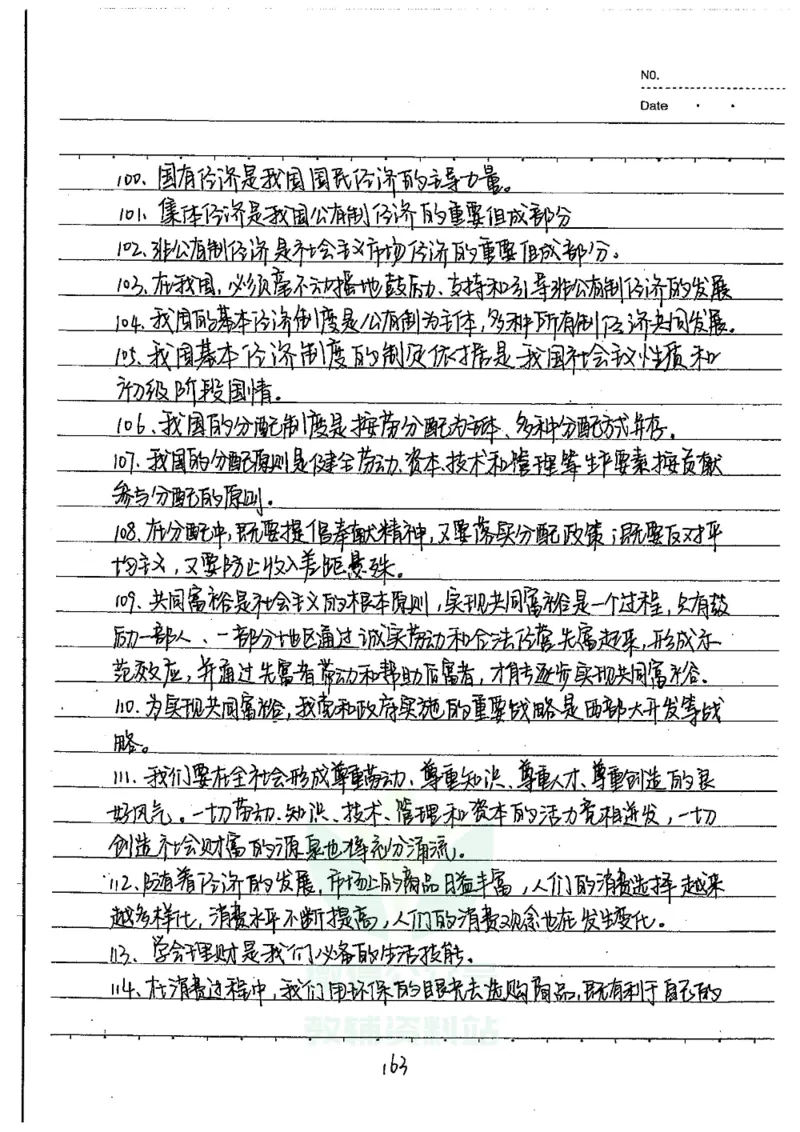 NO.
Date
100、国有经济是我国国民经济的主导力量。
101、集体经济是我国公有制经济的重要组成部分
102、非公有制经济是社会主义市场经济的重要组成部分。
103、在我国，必须毫不动摇地鼓励、支持和引导非公有制经济的发展
104、我国的基本经济制度是公有制为主体，多种所有制经济共同发展。
105、我国基本经济制度的制定依据是我国社会主义性质和
初级阶段国情。
106、我国的分配制度是按劳分配为主体、多种分配方式并存。
107、我国的分配原则是健全劳动、资本、技术和管理等生产要素按贡献
参与分配的原则。
108、在分配中，既要提倡奉献精神，又要落实分配政策；既要反对平
均主义，又要防止收入差距悬殊。
109、共同富裕是社会主义的根本原则，实现共同富裕是一个过程，只有鼓
励一部人、一部分地区通过诚实劳动和合法经营先富起来，形成示
范效应，并通过先富者带动和帮助后富者，才能逐步实现共同富裕。
110、为实现共同富裕，我党和政府实施的重要战略是西部大开发等战
略。
111、我们要在全社会形成尊重劳动、尊重知识、尊重人才、尊重创造的良
好风气。一切劳动、知识、技术、管理和资本的活力竞相迸发，一切
创造社会财富的源泉也将充分涌流。
112、随着经济的发展，市场上的商品日益丰富，人们的消费选择越来
越多样化，消费水平不断提高，人们的消费观念也在发生变化。
113、学会理财是我们必备的生活技能。
114、在消费过程中，我们用环保的眼光去选购商品，既有利于自己的
教辅资料站
163